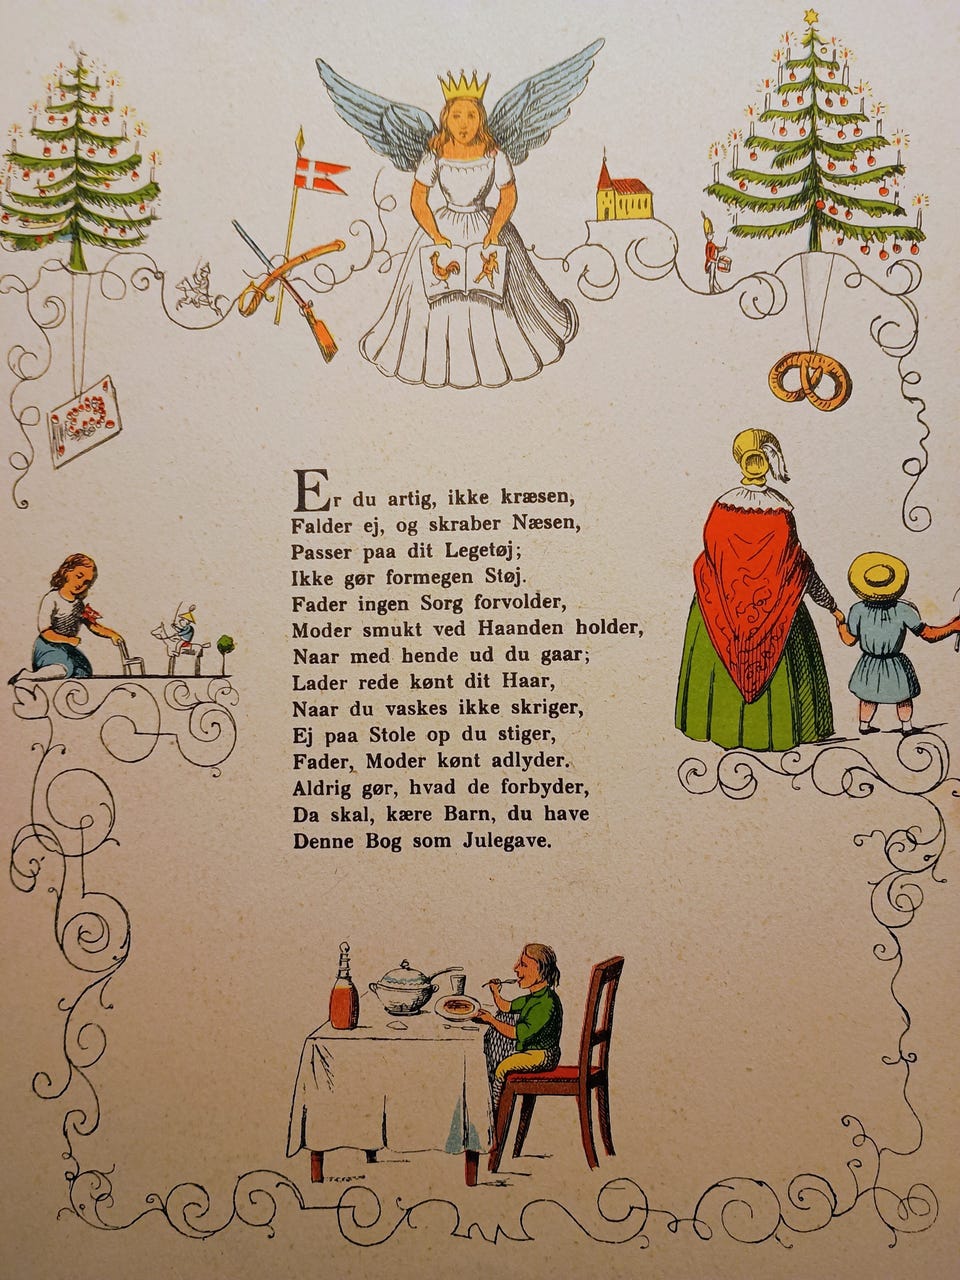 Er du artig, ikke kræsen,
Falder ej, og skraber Næsen,
Passer paa dit Legetøj;
Ikke gør formegen Støj.
Fader ingen Sorg forvolder,
Moder smukt ved Haanden holder,
Naar med hende ud du gaar;
Lader rede kønt dit Haar,
Naar du vaskes ikke skriger,
Ej paa Stole op du stiger,
Fader, Moder kønt adlyder.
Aldrig gør, hvad de forbyder,
Da skal, kære Barn, du have
Denne Bog som Julegave.